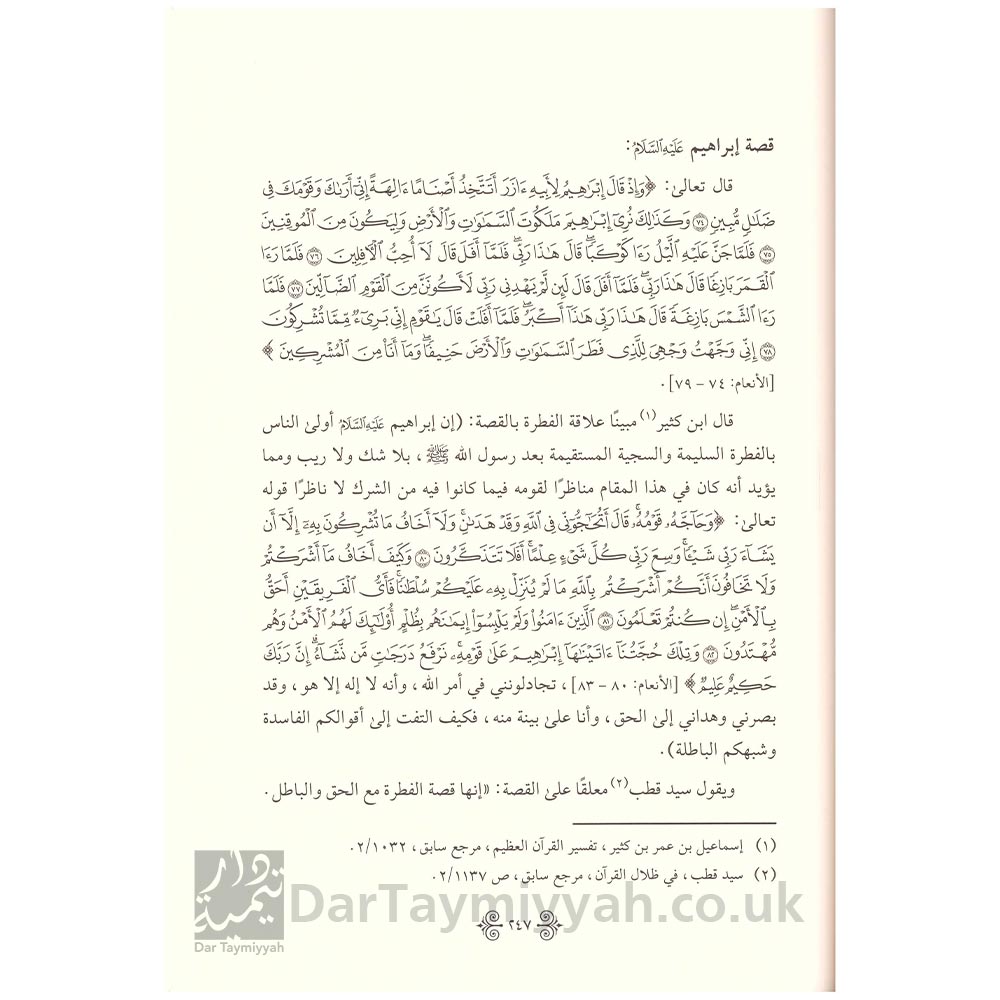 قصة إبراهيم عَلَيْهِ السَّلَامُ:
قال تعالىٰ: ﴿وَإِذْ قَالَ إِبْرَاهِيمُ لِأَبِيهِ ءَازَرَ أَتَتَّخِذُ أَصْنَامًا ءَالِهَةً إِنِّي أَرَىٰكَ وَقَوْمَكَ فِي
ضَلَـٰلٍ مُّبِينٍ ٧٤ وَكَذَٰلِكَ نُرِيٓ إِبْرَٰهِيمَ مَلَكُوتَ السَّمَـٰوَٰتِ وَالْأَرْضِ وَلِيَكُونَ مِنَ الْمُوقِنِينَ
٧٥ فَلَمَّا جَنَّ عَلَيْهِ الَّيْلُ رَءَا كَوْكَبًا قَالَ هَـٰذَا رَبِّي فَلَمَّآ أَفَلَ قَالَ لَآ أُحِبُّ الْآفِلِينَ ٧٦ فَلَمَّا رَءَا
الْقَمَرَ بَازِغًا قَالَ هَـٰذَا رَبِّي فَلَمَّآ أَفَلَ قَالَ لَئِن لَّمْ يَهْدِنِي رَبِّي لَأَكُونَنَّ مِنَ الْقَوْمِ الضَّآلِّينَ ٧٧ فَلَمَّا
رَءَا الشَّمْسَ بَازِغَةً قَالَ هَـٰذَا رَبِّي هَـٰذَآ أَكْبَرُ فَلَمَّآ أَفَلَتْ قَالَ يَـٰقَوْمِ إِنِّي بَرِيٓءٌ مِّمَّا تُشْرِكُونَ
٧٨ إِنِّي وَجَّهْتُ وَجْهِيَ لِلَّذِي فَطَرَ السَّمَـٰوَٰتِ وَالْأَرْضَ حَنِيفًا وَمَآ أَنَا۠ مِنَ الْمُشْرِكِينَ ﴾
[الأنعام: ٧٤ – ٧٩].
قال ابن كثير(١) مبينًا علاقة الفطرة بالقصة: (إن إبراهيم عَلَيْهِ السَّلَامُ أولىٰ الناس
بالفطرة السليمة والسجية المستقيمة بعد رسول الله ﷺ، بلا شك ولا ريب ومما
يؤيد أنه كان في هذا المقام مناظرًا لقومه فيما كانوا فيه من الشرك لا ناظرًا قوله
تعالىٰ: ﴿وَحَآجَّهُۥ قَوْمُهُۥ قَالَ أَتُحَـٰٓجُّوٓنِّي فِي اللَّهِ وَقَدْ هَدَىٰنِ وَلَآ أَخَافُ مَا تُشْرِكُونَ بِهِۦٓ إِلَّآ أَن
يَشَآءَ رَبِّي شَيْـًٔا وَسِعَ رَبِّي كُلَّ شَيْءٍ عِلْمًا أَفَلَا تَتَذَكَّرُونَ ٨٠ وَكَيْفَ أَخَافُ مَآ أَشْرَكْتُمْ
وَلَا تَخَافُونَ أَنَّكُمْ أَشْرَكْتُم بِاللَّهِ مَا لَمْ يُنَزِّلْ بِهِۦ عَلَيْكُمْ سُلْطَـٰنًا فَأَيُّ الْفَرِيقَيْنِ أَحَقُّ
بِالْأَمْنِ إِن كُنتُمْ تَعْلَمُونَ ٨١ الَّذِينَ ءَامَنُوا۟ وَلَمْ يَلْبِسُوٓا۟ إِيمَـٰنَهُم بِظُلْمٍ أُو۟لَـٰٓئِكَ لَهُمُ الْأَمْنُ وَهُم
مُّهْتَدُونَ ٨٢ وَتِلْكَ حُجَّتُنَآ ءَاتَيْنَـٰهَآ إِبْرَٰهِيمَ عَلَىٰ قَوْمِهِۦ نَرْفَعُ دَرَجَـٰتٍ مَّن نَّشَآءُ إِنَّ رَبَّكَ
حَكِيمٌ عَلِيمٌ﴾ [الأنعام: ٨٠ – ٨٣]، تجادلونني في أمر الله، وأنه لا إله إلا هو، وقد
بصرني وهداني إلىٰ الحق، وأنا علىٰ بينة منه، فكيف التفت إلىٰ أقوالكم الفاسدة
وشبهكم الباطلة).
ويقول سيد قطب(٢) معلقًا علىٰ القصة: «إنها قصة الفطرة مع الحق والباطل.
(١) إسماعيل بن عمر بن كثير، تفسير القرآن العظيم، مرجع سابق، ٠٢/١٠٣٢
(٢) سيد قطب، في ظلال القرآن، مرجع سابق، ص ٠٢/١١٣٧
٢٤٧
دار تيمية
Dar Taymiyyah
DarTaymiyyah.co.uk